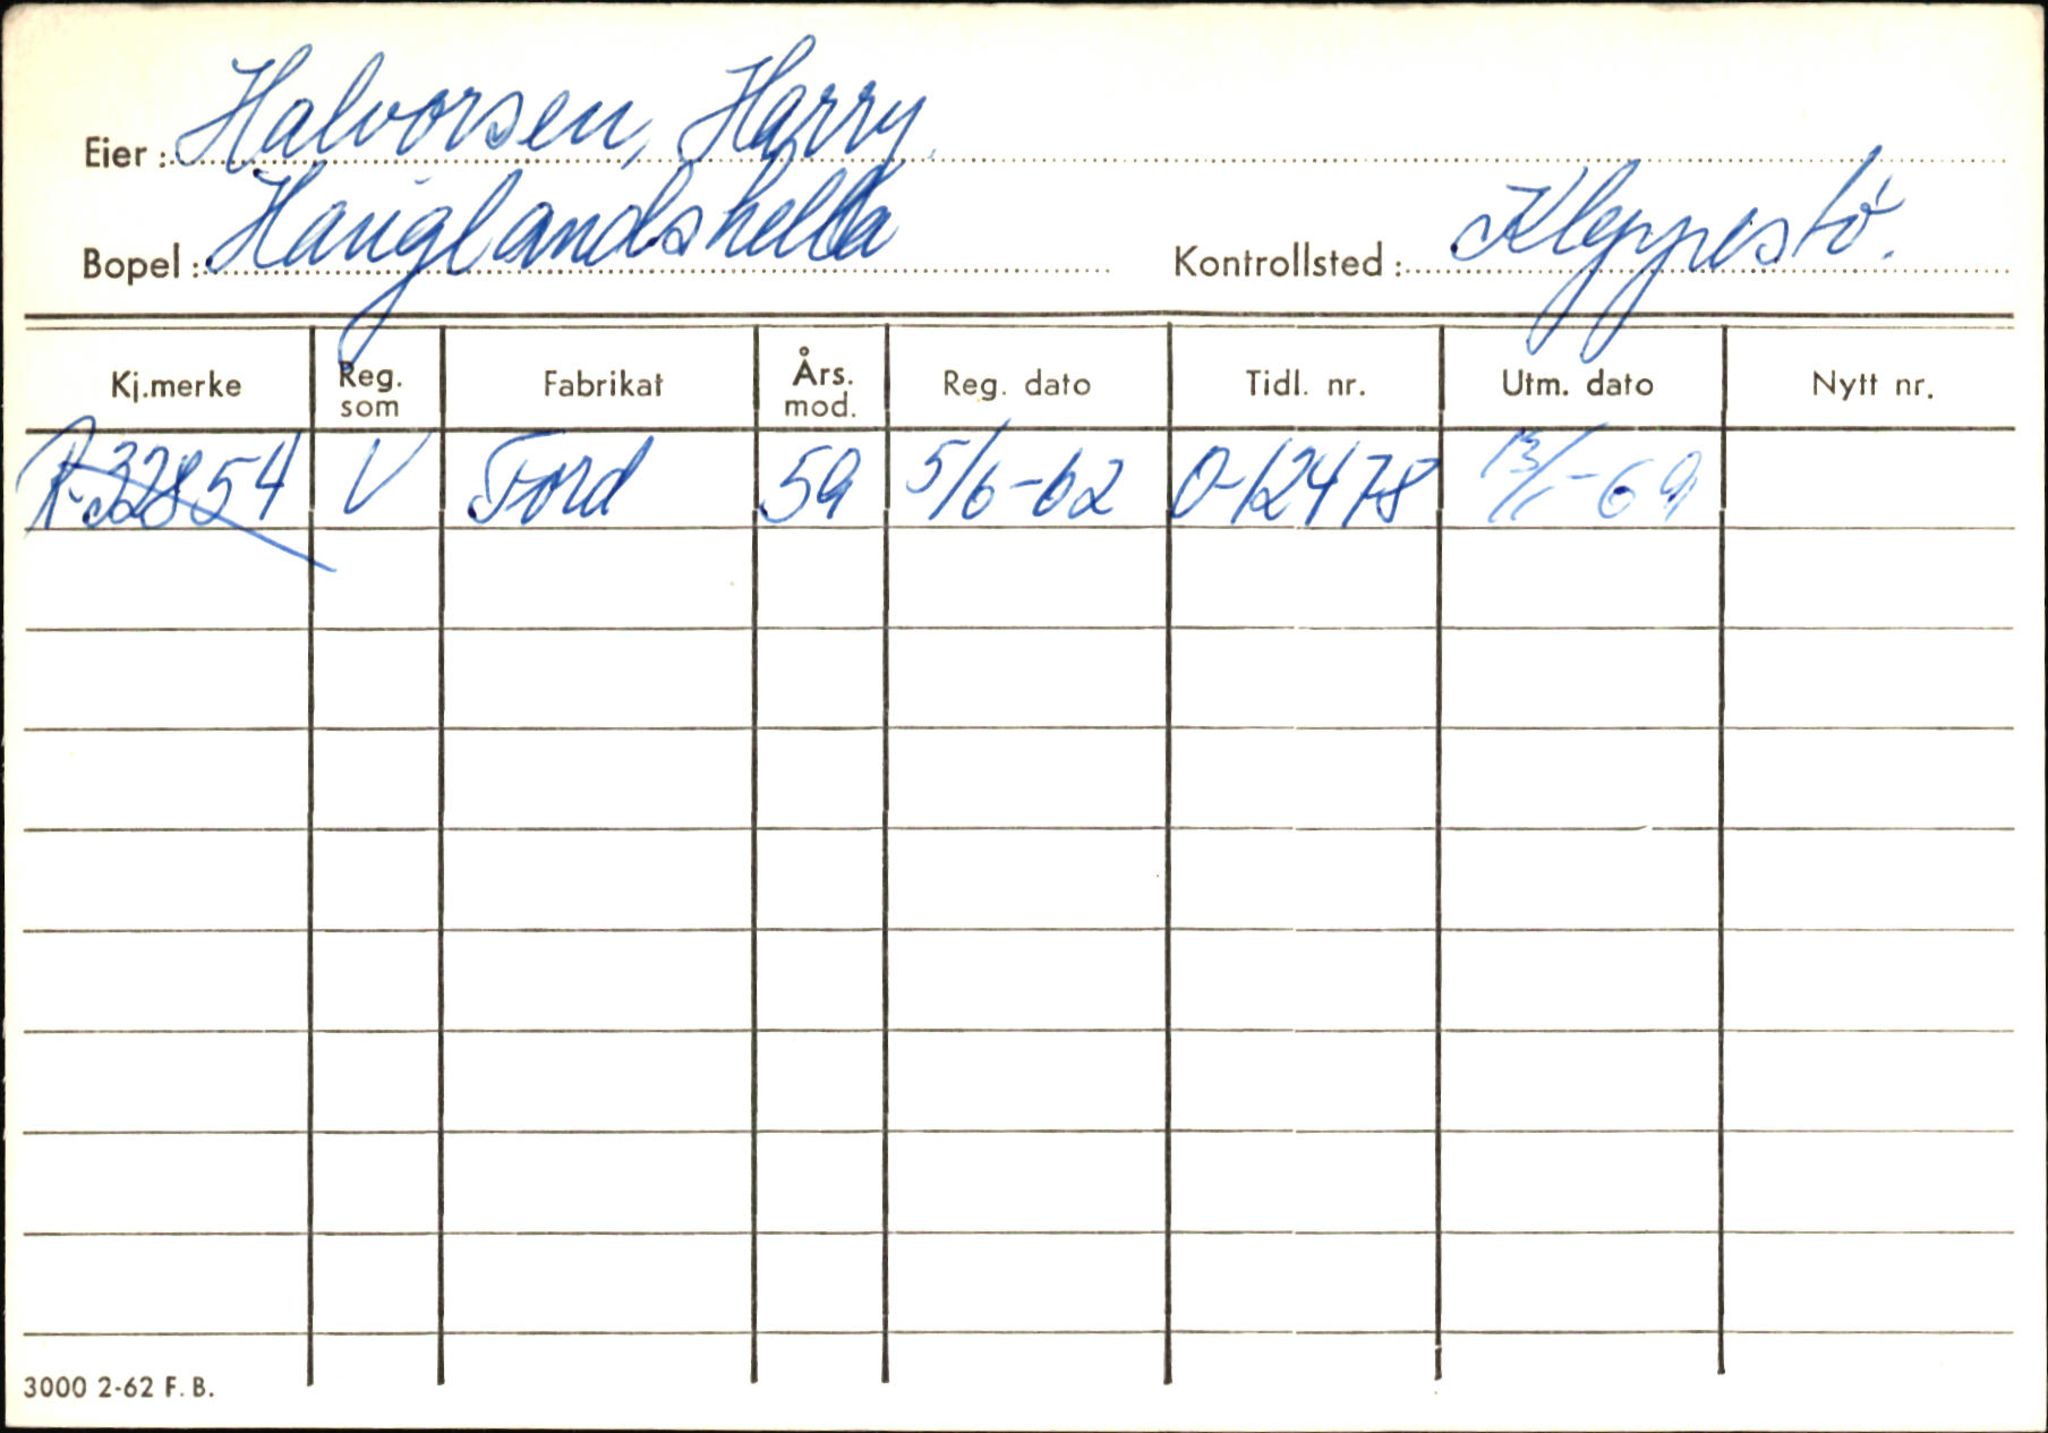 Eier: Halvorsen, Harry.
Bopel: Hauglandshella Kontrollsted: Kleppestö.
Kj.merke Reg. som Fabrikat Års. mod. Reg. dato Tidl. nr. Utm. dato Nytt nr.
R-32854 V Ford 59 5/6-62 O-12478 13/1-69
3000 2-62 F. B.